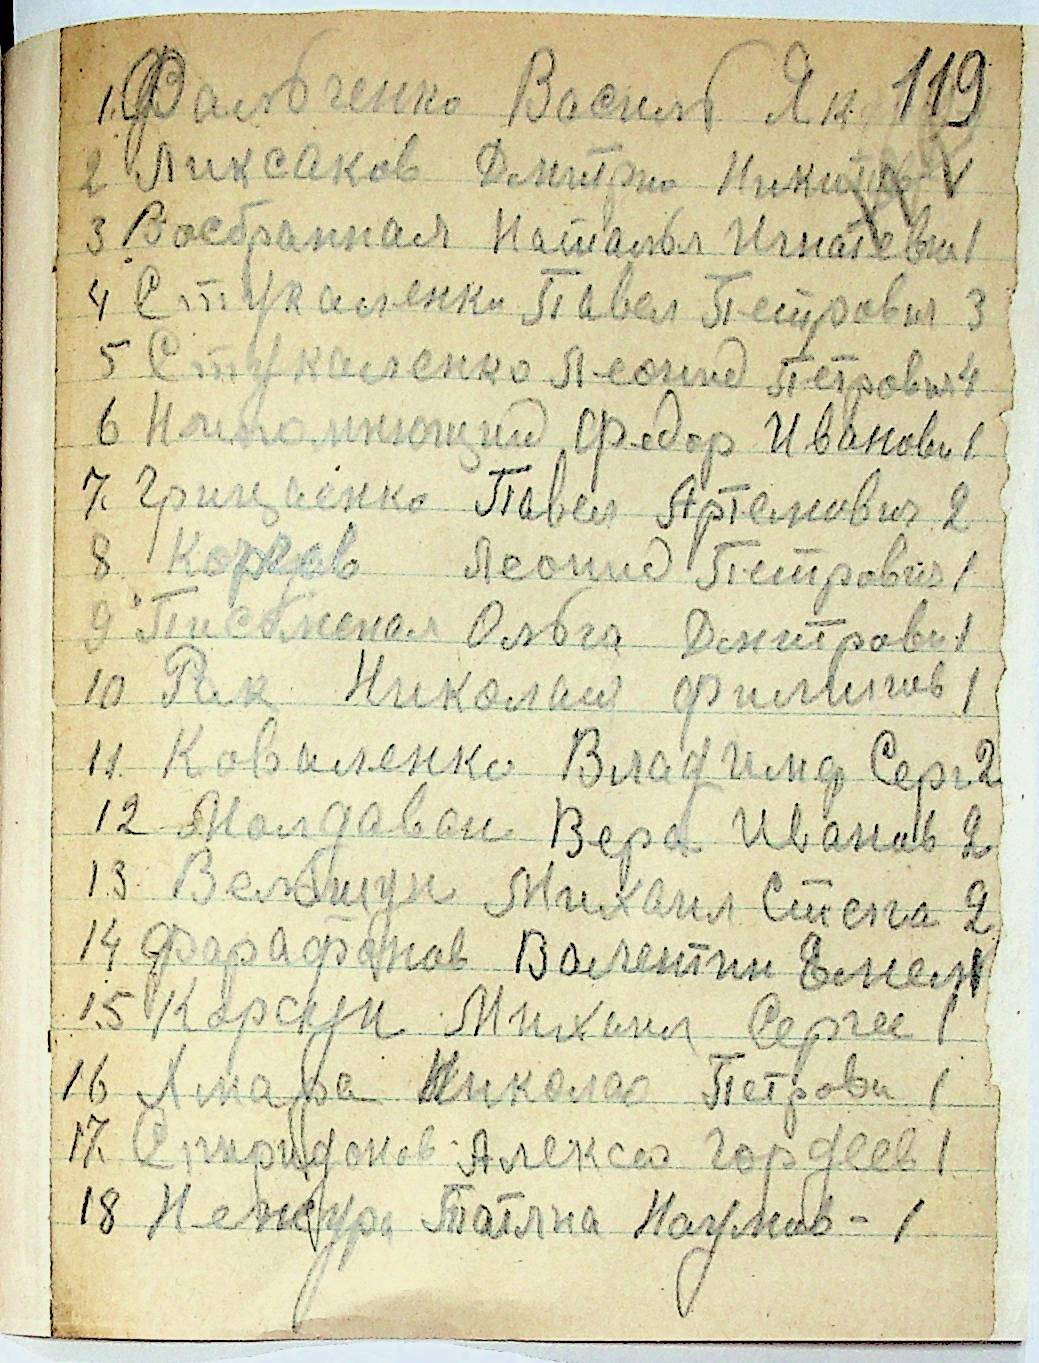 1. Фальченко Василь Як 119
2 Ликсаков Дмитрио Никит 1
3 Восбранная Наталья Игнатевн 1
4 Стукаленко Павел Петрович 3
5 Стукаленко Леонид Петрович 4
6 Федор Иванови 1
7. Грищенко Павел Артемович 2
8 Леонид Петрович 1
9 Письменая Ольга Дмитрови 1
10 Рак Николай Филипов 1
11. Коваленко Владимир Серг 2
12 Молдаван Вера Иванов 2
13. Михаил Степа 2
14 Фарафонов Валентин Емел 1
15 Корсун Михаил Сергее 1
16 Хмара Николао Петрови 1
17. Спиридонов Алексео Гордеев 1
18 Татяна Наумов - 1